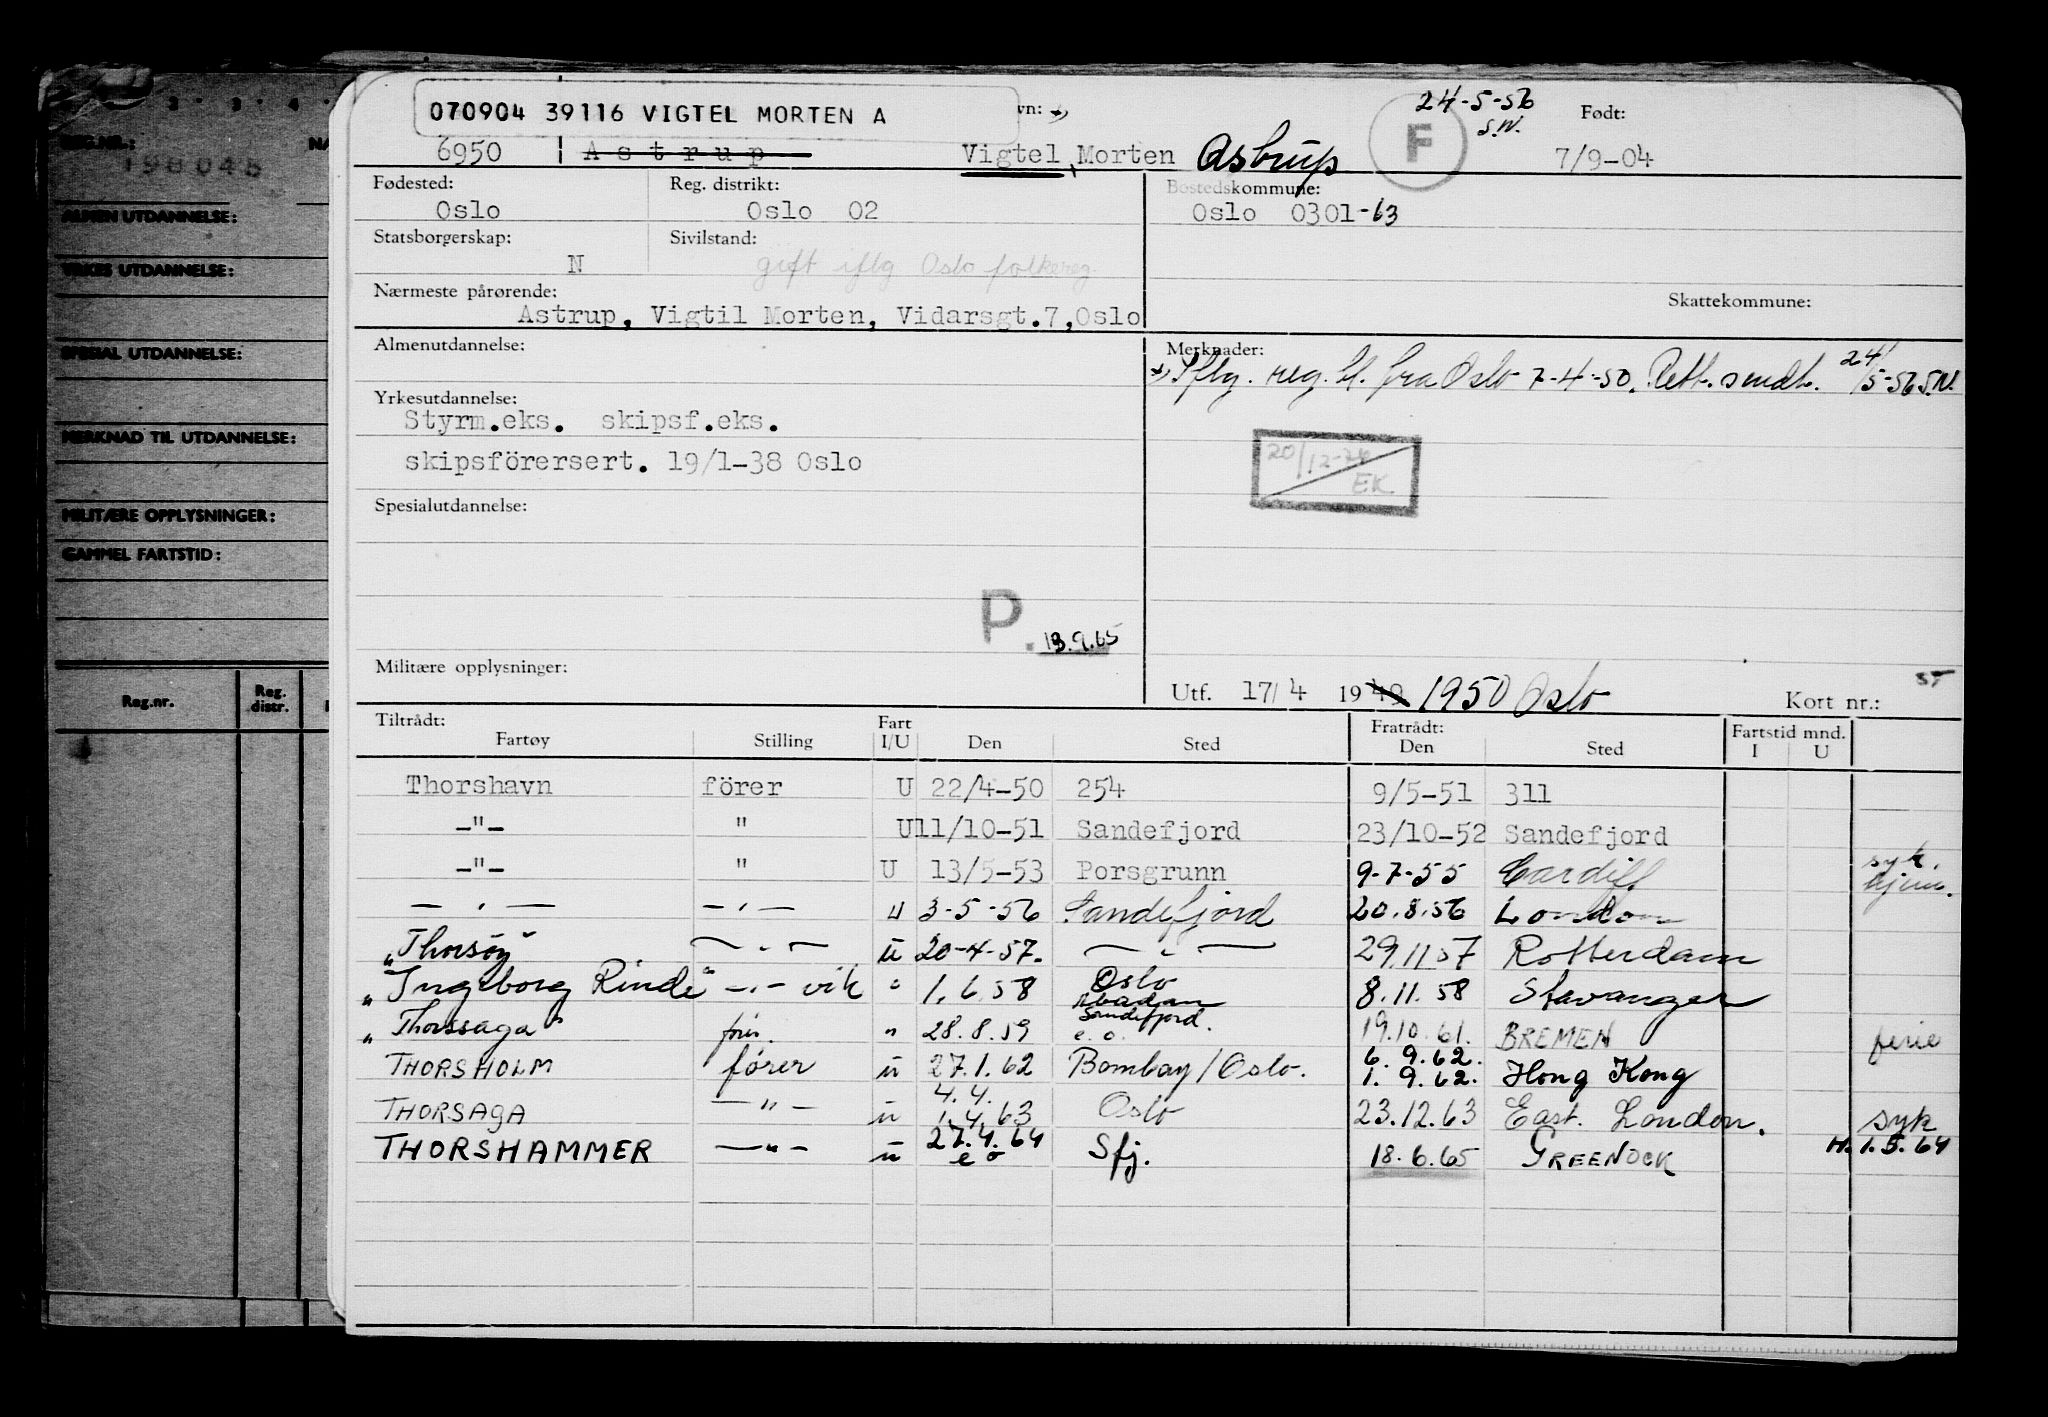 2 · 3 · 4 ·
REG.NR.: NA
198045
ALMEN UTDANNELSE:
YRKES UTDANNELSE:
SPESIAL UTDANNELSE:
MERKNAD TIL UTDANNELSE:
MILITÆRE OPPLYSNINGER:
GAMMEL FARTSTID:
Reg.nr. Reg. distr.
070904 39116 VIGTEL MORTEN A
vn: 24-5-56 Født:
S.N.
F
6950 Astrup Vigtel, Morten Astrup 7/9-04
Fødested: Reg. distrikt: Bostedskommune:
Oslo Oslo 02 Oslo 0301-63
Statsborgerskap: Sivilstand:
N gift iflg Oslo folkereg.
Nærmeste pårørende: Skattekommune:
Astrup, Vigtil Morten, Vidarsgt.7,Oslo
Almenutdannelse: Merknader:
Iflg. reg. bl. fra Oslo 7-4-50. Rett. sendt. 24/5-56 S.N.
Yrkesutdannelse:
Styrm.eks. skipsf.eks.
skipsförersert. 19/1-38 Oslo
20/12-76
EK
Spesialutdannelse:
P. 13.9.65
Militære opplysninger:
Utf. 17/4 1949 1950 Oslo Kort nr.:
Tiltrådt: Fart Fratrådt: Fartstid mnd.
Fartøy Stilling I/U Den Sted Den Sted I U
Thorshavn förer U 22/4-50 254 9/5-51 311
-"- " U 11/10-51 Sandefjord 23/10-52 Sandefjord
-"- " U 13/5-53 Porsgrunn 9-7-55 Cardiff syk. hjem.
— " — — " — u 3-5-56 Sandefjord 20.8.56 London
"Thorsøy" — " — u 20-4-57. — " — 29.11 57 Rotterdam
"Ingeborg Rinde" -"- vik " 1.6.58 Oslo 8.11.58 Stavanger
"Thorssaga" förer. " 28.8.59 Abadan Sandefjord. e.o. 19.10.61. BREMEN ferie
THORSHOLM fører u 27.1.62 Bombay/Oslo. 6.9.62. 1.9.62. Hong Kong
THORSAGA — " — u 4.4. 1.4.63 Oslo 23.12.63 East. London. syk
THORSHAMMER — " — u 27.4.64 e o Sfj. 18.6.65 GREENOCK H.1.5.64